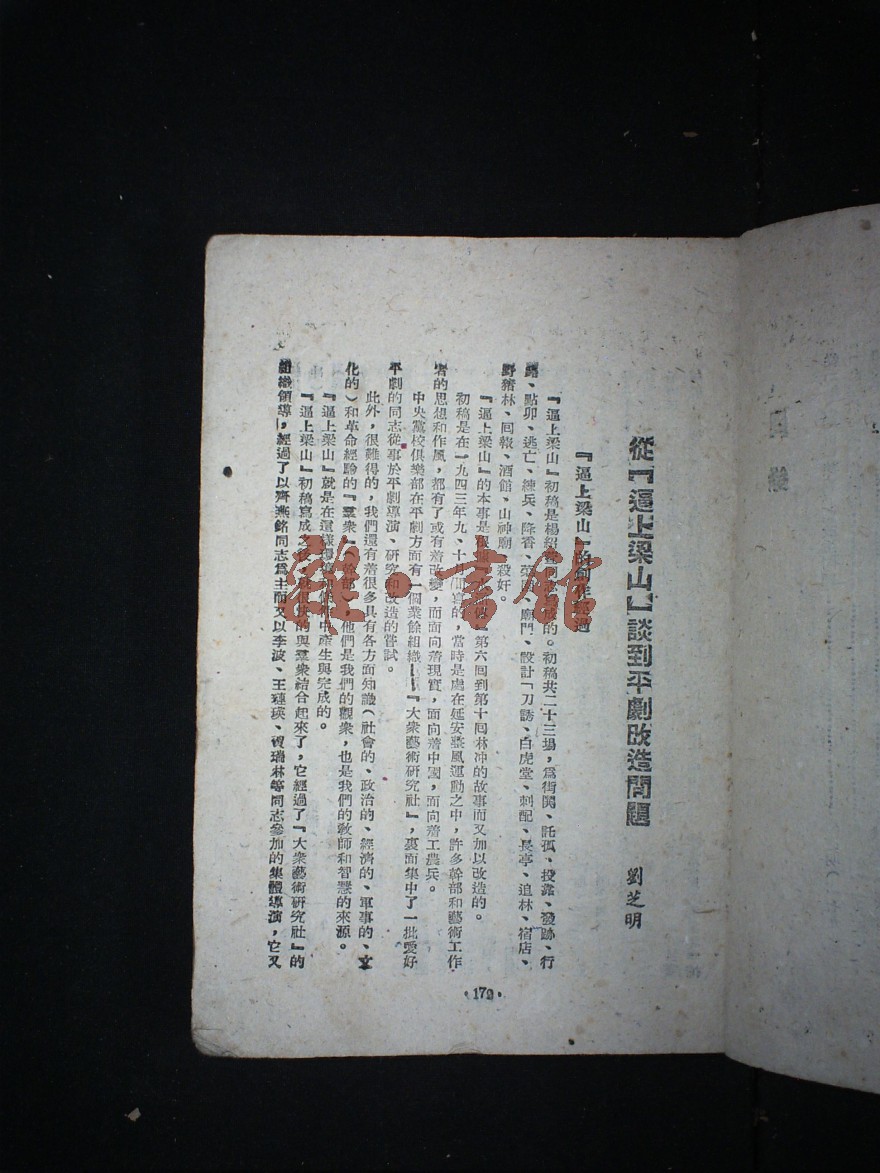 從『逼上梁山』談到平劇改造問題
劉芝明
『逼上梁山』的創作經過
『逼上梁山』初稿是楊紹萱同志寫的。初稿共二十三場，爲街鬨、託孤、投靠、發跡、行
路、點卯、逃亡、練兵、降香、菜園、廟門、設計「刀誘、白虎堂、刺配、長亭、追林、宿店、
野猪林、回報、酒館、山神廟、殺奸。
『逼上梁山』的本事是根據『水滸傳』第六回到第十回林冲的故事而又加以改造的。
初稿是在一九四三年九、十月間寫的，當時是處在延安整風運動之中，許多幹部和藝術工作
者的思想和作風，都有了或有着改變，而面向着現實，面向着中國，面向着工農兵。
中央黨校俱樂部在平劇方面有一個業餘組織——『大衆藝術研究社』，裏面集中了一批愛好
平劇的同志從事於平劇導演、研究和改造的嘗試。
此外，很難得的，我們還有着很多具有各方面知識（社會的、政治的、經濟的、軍事的、文
化的）和革命經驗的『羣衆』（幹部），他們是我們的觀衆，也是我們的敎師和智慧的來源。
『逼上梁山』就是在這樣
中產生與完成的。
『逼上梁山』初稿寫成之後，就很快的與羣衆結合起來了，它經過了『大衆藝術研究社』的
組織領導，經過了以齊燕銘同志爲主而又以李波、王璉瑛、賀瑞林等同志參加的集體導演，它又
·179·
雜·書館